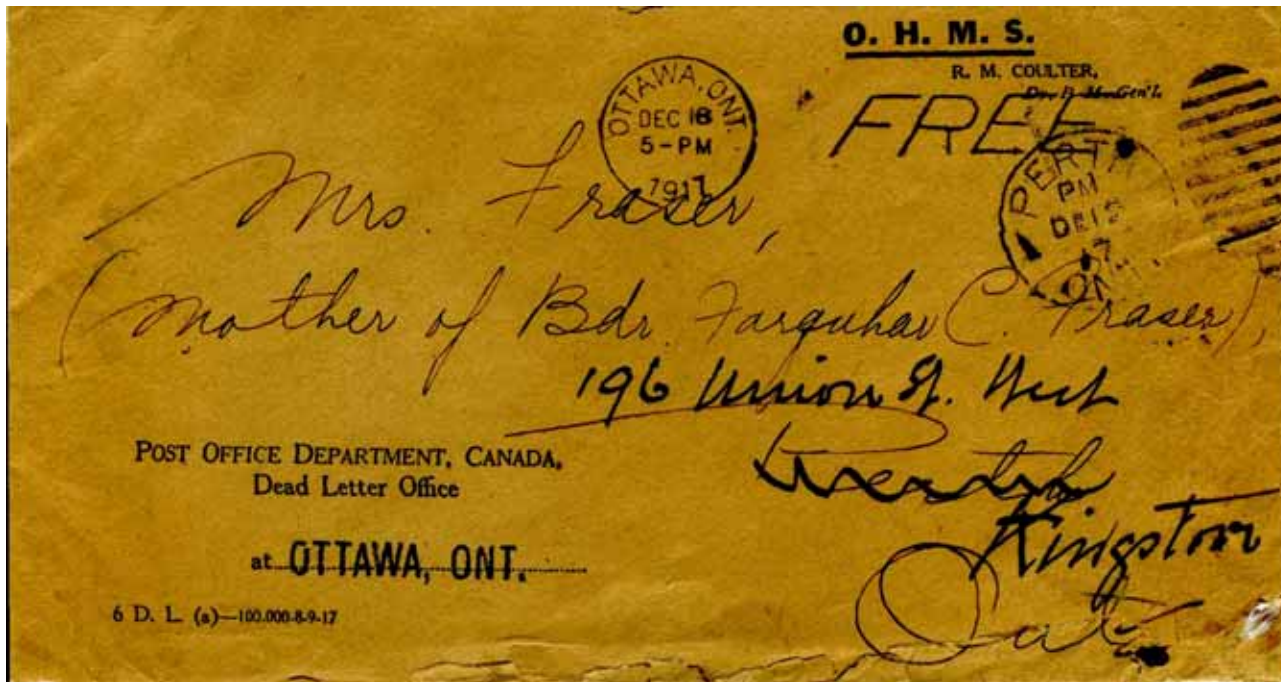 O. H. M. S.
R. M. COULTER,
Dy. P. M. Gen'l.
FREE
OTTAWA, ONT.
DEC 18
5-PM
1917
PERTH
PM
DE 19
17
ONT.
Mrs. Fraser,
(Mother of Bdr. Farquhar C. Fraser),
196 Union St. West
Perth
Kingston
Ont.
POST OFFICE DEPARTMENT, CANADA,
Dead Letter Office
at OTTAWA, ONT.
6 D. L. (a)—100.000-8-9-17